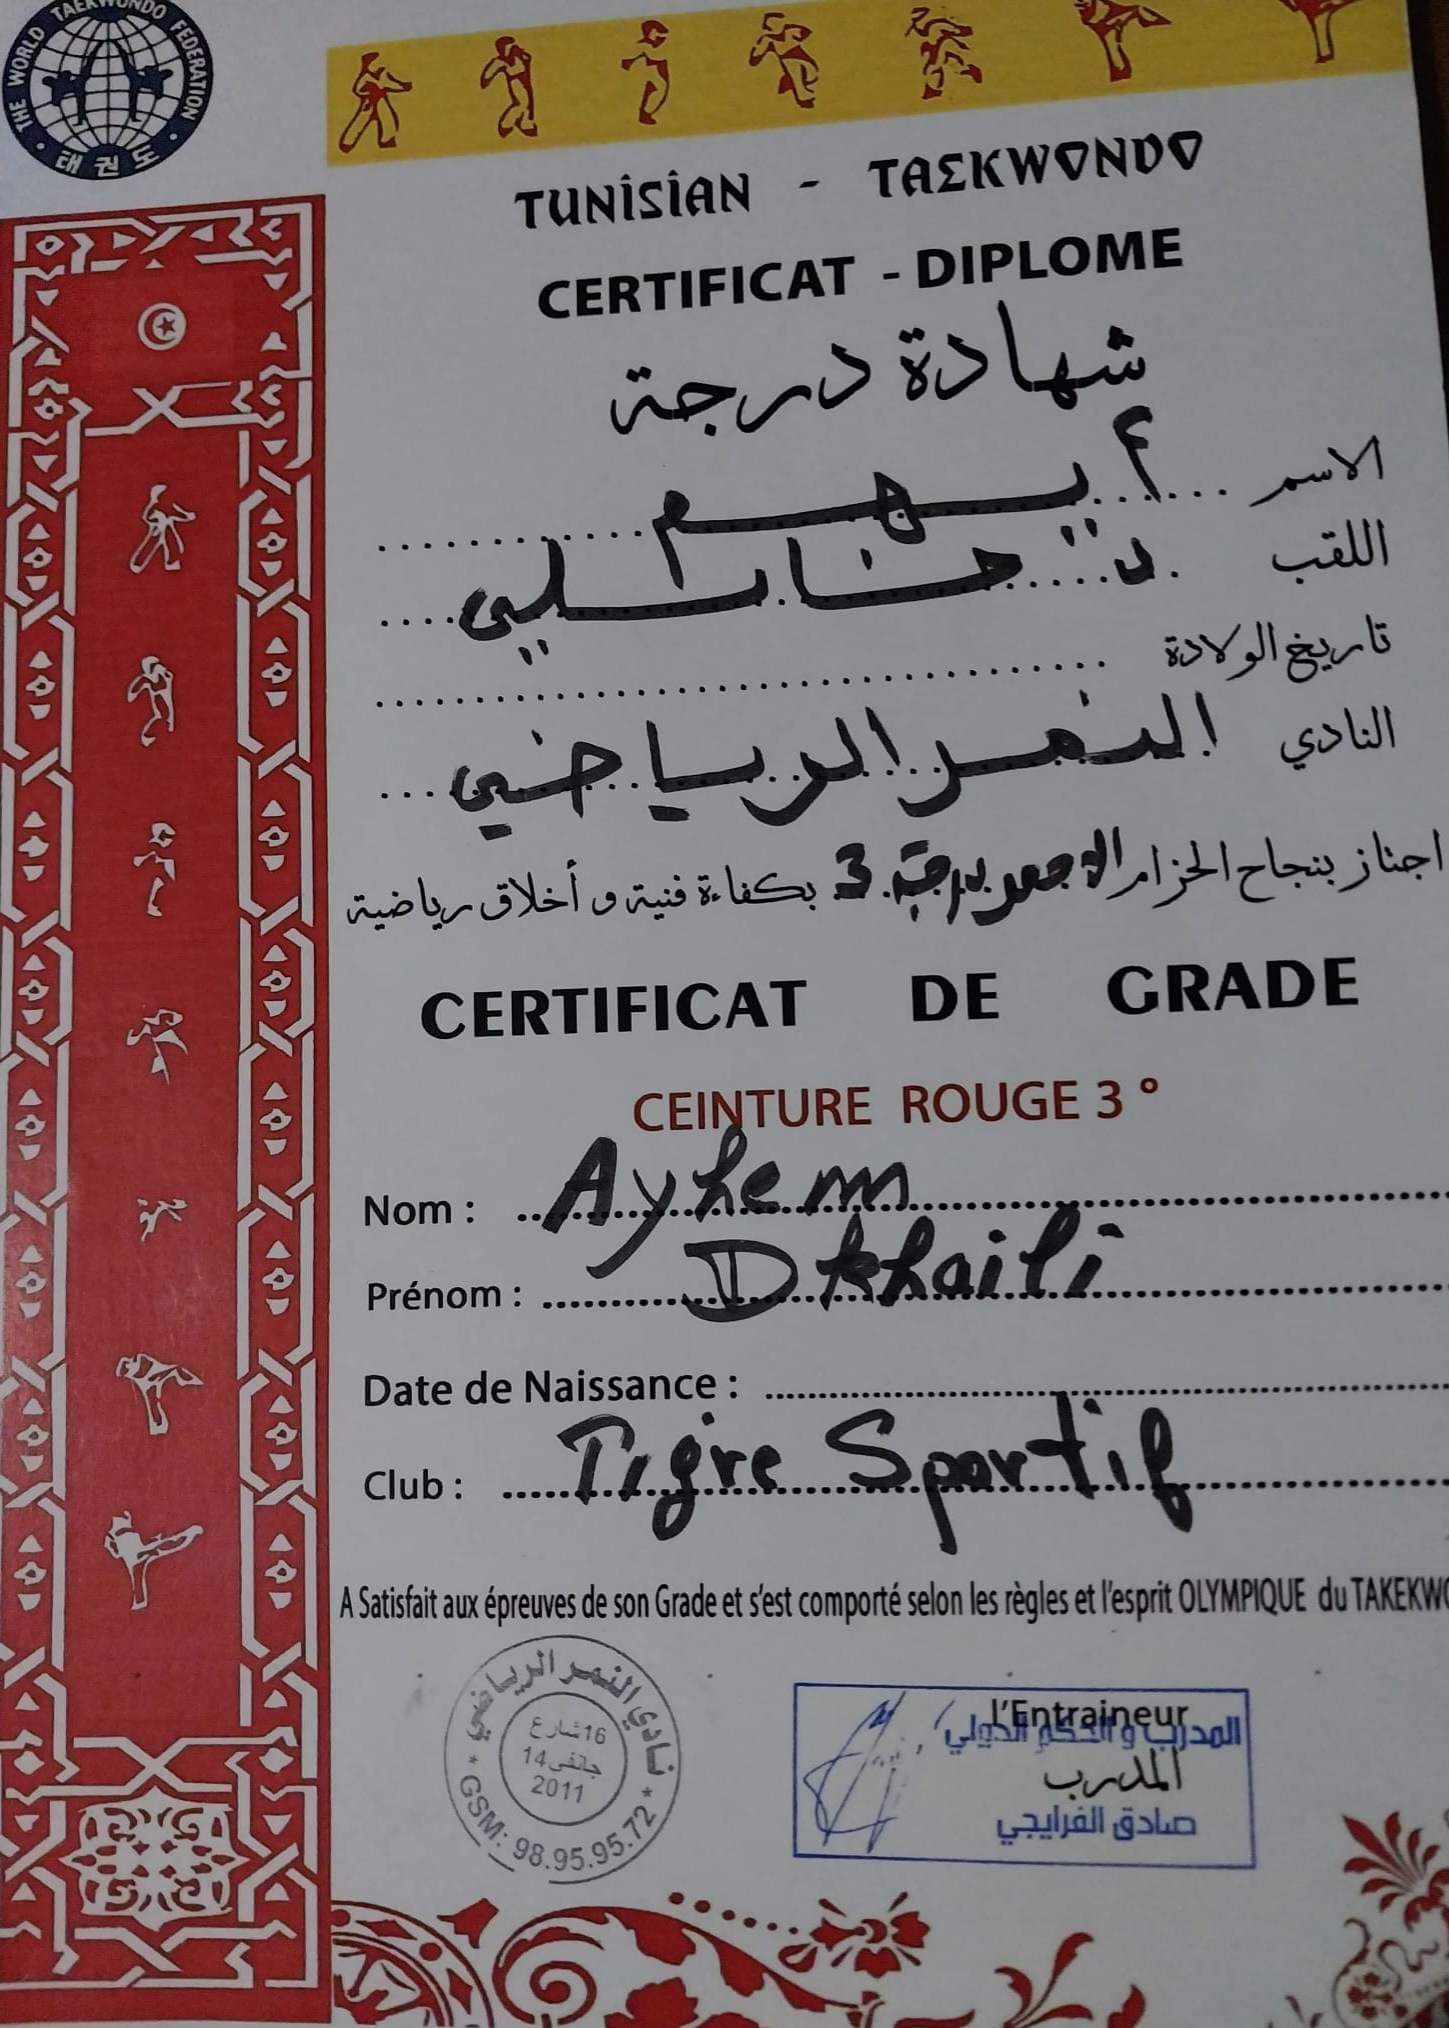 THE WORLD TAEKWONDO FEDERATION
태권도
TUNISIAN - TAEKWONDO
CERTIFICAT - DIPLOME
شهادة درجة
الاسم أيهم
اللقب دخايلي
تاريخ الولادة
النادي النمر الرياضي
اجتاز بنجاح الحزام الاحمر درجة 3 بكفاءة فنية و أخلاق رياضية
CERTIFICAT DE GRADE
CEINTURE ROUGE 3 °
Nom : Ayhem
Prénom : Dkhaili
Date de Naissance :
Club : Tigre Sportif
A Satisfait aux épreuves de son Grade et s'est comporté selon les règles et l'esprit OLYMPIQUE du TAKEKWO
نادي النمر الرياضي
16 شارع
14 جانفي
2011
GSM: 98.95.95.72
l'Entraineur
المدرب و الحكم الدولي
المدرب
صادق الفرايجي